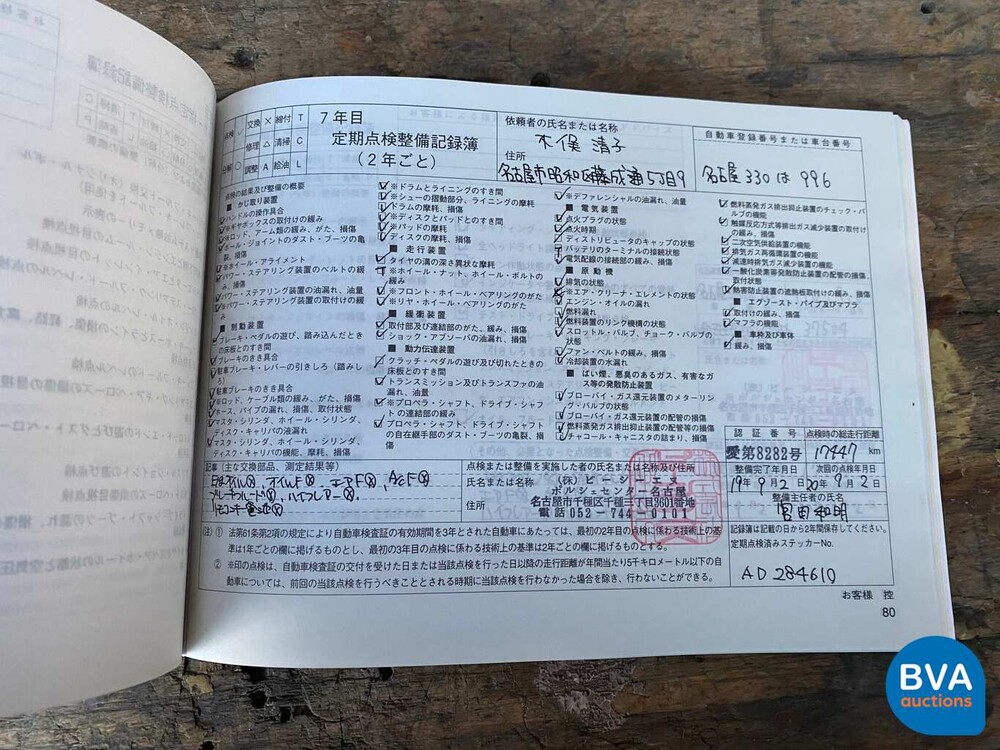 点検 ✓ 交換 × 締付 T
修理 △ 清掃 C
分解 ○ 調整 A 給油 L
7年目
定期点検整備記録簿
(2年ごと)
依頼者の氏名または名称
木俣 清子
住所
名古屋市昭和区藤成通5丁目9
自動車登録番号または車台番号
名古屋 330 は 996
点検の結果及び整備の概要
■ かじ取り装置
ハンドルの操作具合
※ギヤボックスの取付けの緩み
※ロッド、アーム類の緩み、がた、損傷
ボール・ジョイントのダスト・ブーツの亀裂、損傷
※ホイール・アライメント
パワー・ステアリング装置のベルトの緩み、損傷
パワー・ステアリング装置の油漏れ、油量
※パワー・ステアリング装置の取付けの緩み
■ 制動装置
ブレーキ・ペダルの遊び、踏み込んだときの床板とのすき間
ブレーキのきき具合
駐車ブレーキ・レバーの引きしろ(踏みしろ)
駐車ブレーキのきき具合
※ロッド、ケーブル類の緩み、がた、損傷
ホース、パイプの漏れ、損傷、取付状態
マスタ・シリンダ、ホイール・シリンダ、ディスク・キャリパの液漏れ
マスタ・シリンダ、ホイール・シリンダ、ディスク・キャリパの機能、摩耗、損傷
※ドラムとライニングのすき間
※シューの摺動部分、ライニングの摩耗
ドラムの摩耗、損傷
※ディスクとパッドとのすき間
※パッドの摩耗
ディスクの摩耗、損傷
■ 走行装置
タイヤの溝の深さ異状な摩耗
※ホイール・ナット、ホイール・ボルトの緩み
※フロント・ホイール・ベアリングのがた
※リヤ・ホイール・ベアリングのがた
■ 緩衝装置
取付部及び連結部のがた、緩み、損傷
ショック・アブソーバの油漏れ、損傷
■ 動力伝達装置
クラッチ・ペダルの遊び及び切れたときの床板とのすき間
トランスミッション及びトランスファの油漏れ、油量
※プロペラ・シャフト、ドライブ・シャフトの連結部の緩み
プロペラ・シャフト、ドライブ・シャフトの自在継手部のダスト・ブーツの亀裂、損傷
※デファレンシャルの油漏れ、油量
■ 電気装置
点火プラグの状態
点火時期
ディストリビュータのキャップの状態
バッテリのターミナルの接続状態
電気配線の接続部の緩み、損傷
■ 原動機
排気の状態
※エア・クリーナ・エレメントの状態
エンジン・オイルの漏れ
燃料漏れ
燃料装置のリンク機構の状態
スロットル・バルブ、チョーク・バルブの状態
ファン・ベルトの緩み、損傷
冷却装置の水漏れ
■ ばい煙、悪臭のあるガス、有害なガス等の発散防止装置
ブローバイ・ガス還元装置のメターリング・バルブの状態
ブローバイ・ガス還元装置の配管の損傷
燃料蒸発ガス排出抑止装置の配管等の損傷
チャコール・キャニスタの詰まり、損傷
燃料蒸発ガス排出抑止装置のチェック・バルブの機能
触媒反応方式等排出ガス減少装置の取付けの緩み、損傷
二次空気供給装置の機能
排気ガス再循環装置の機能
減速時排気ガス減少装置の機能
一酸化炭素等発散防止装置の配管の損傷、取付状態
熱害防止装置の遮熱板取付けの緩み、損傷
■ エグゾースト・パイプ及びマフラ
取付けの緩み、損傷
マフラの機能
■ 車枠及び車体
緩み、損傷
記事(主な交換部品、測定結果等)
点検または整備を実施した者の氏名または名称及び住所
氏名または名称 (株)ピーシーエヌ
ポルシェセンター名古屋
住所 名古屋市千種区千種三丁目3601番地
電話 052-744-0101
認証番号
愛第8282号
点検時の総走行距離
17447 km
整備完了年月日
19年 9月 2日
次回の点検年月日
20年 9月 2日
整備主任者の氏名
宮田 和明
記録簿は記載の日から2年間保存してください。
定期点検済みステッカーNo.
AD 284610
(注) ① 法第61条第2項の規定により自動車検査証の有効期間を3年とされた自動車にあたっては、最初の2年目の点検に係わる技術上の基準は1年ごとの欄に掲げるものとし、最初の3年目の点検に係わる技術上の基準は2年ごとの欄に掲げるものとする。
② ※印の点検は、自動車検査証の交付を受けた日または当該点検を行った日以降の走行距離が年間当たり5千キロメートル以下の自動車については、前回の当該点検を行うべきこととされる時期に当該点検を行わなかった場合を除き、行わないことができる。
お客様 控
80
BVA
auctions